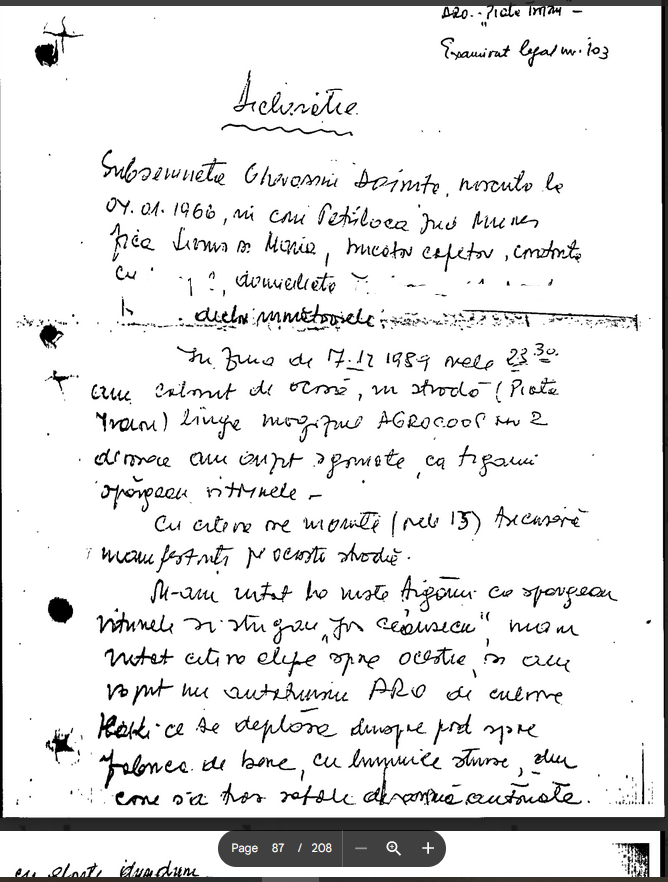 ARO - "Piața Traian" -
Examinat legal nr. 103
Declarație
Subsemnata Ghevassin , născută la
04.01.1966, în com Petriloca jud Mureș
fiica și Maria, , 
cu , domiciliată
declar următoarele:
În ziua de 17.12 1989 orele 23 30.
am coborît de acasă, în stradă (Piața
Traian) lîngă magazinul AGROCOOP nr 2
deoarece am auzit zgomote, ca țigani
spărgeau vitrinele -
Cu cîteva ore înainte (orele 15) trecuseră
manifestanți pe această stradă.
M-am uitat la niște țigani ce spărgeau
vitrinele și strigau "Jos Ceaușescu", m-am
uitat cîteva clipe spre aceștia, și am
văzut un autoturism ARO de culoare
kaki ce se deplasa dinspre pod spre
fabrica de bere, cu luminile stinse, din
care s-a tras rafale de armă automată.
Page 87 / 208